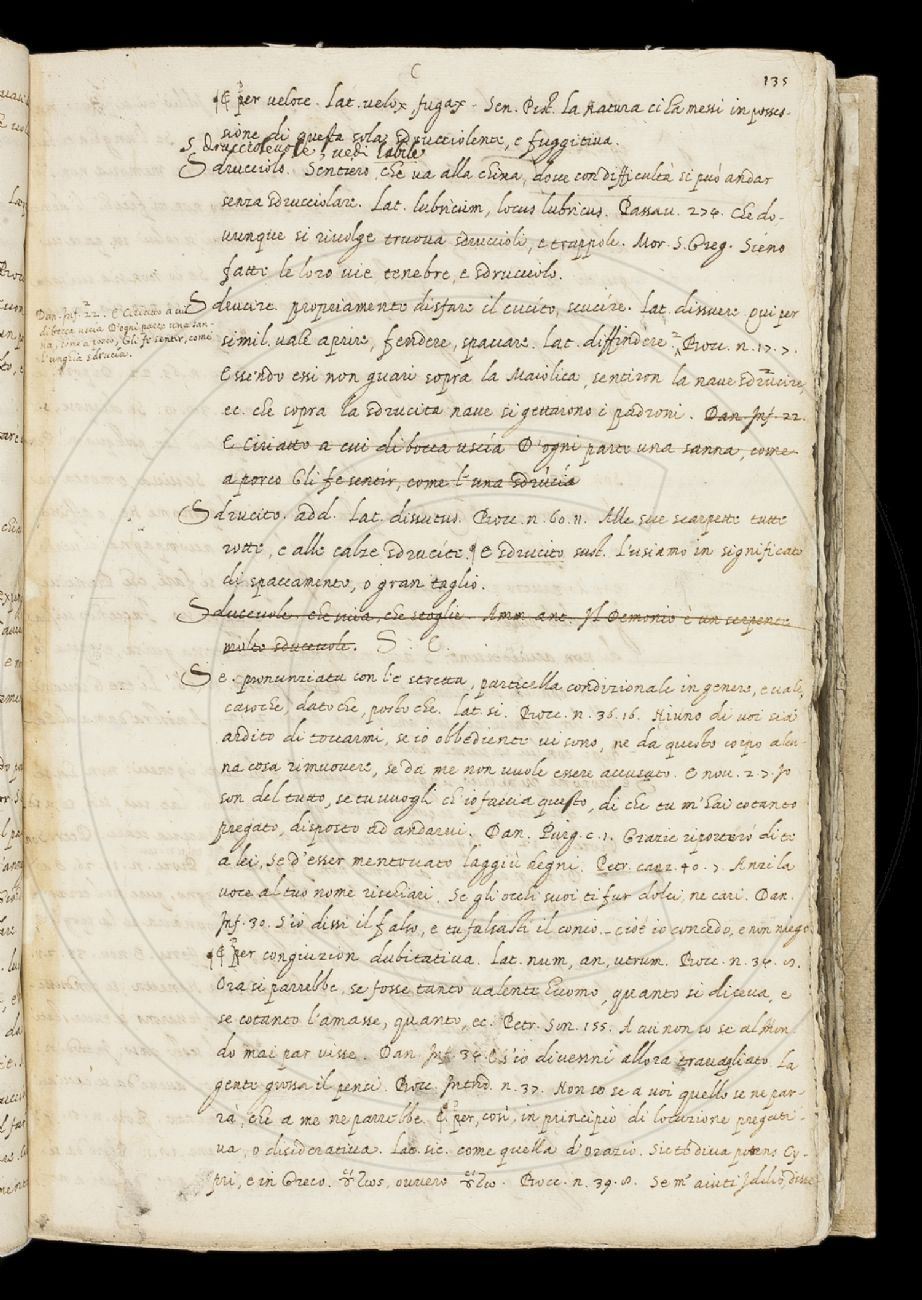 C
135
¶ E per veloce. Lat. velox, fugax. Sen. Pist. La natura ci ha messi in posses-
sione di questa sola sdrucciolente, e fuggitiva.
Sdrucciolevole, vedi labile
Sdrucciolo. Sentiero, che va alla china, dove con difficultà si può andar
senza sdrucciolare. Lat. lubricum, locus lubricus. Passau. 274. Che do-
vunque si rivolge truova sdruccioli, e trappole. Mor. S. Greg. Sieno
fatte le loro vie tenebre, e sdrucciolo.
Sdrucire. propriamente disfare il cucito, scucire. Lat. dissuere qui per
simil. vale aprire, fendere, spaccare. Lat. diffindere. Bocc. n. 17. 7.
Essendo essi non guari sopra la Maiolica, sentiron la nave sdrucire,
ec. che sopra la sdrucita nave si gettarono i padroni. Dan. Inf. 22.
E Ciriatto a cui di bocca uscia D'ogni parte una sanna, come
a porco Gli fe sentir, come l'una sdrucia
Dan. Inf. 22. E Ciriatto a cui
di bocca uscia D'ogni parte una san-
na, come a porco, Gli fe sentir, come
l'unghia sdrucia.
Sdrucito. add. Lat. dissutus. Bocc. n. 60. 11. Alle sue scarpette tutte
rotte, e alle calze sdrucite. ¶ E sdrucito sust. l'usiamo in significato
di spaccamento, o gran taglio.
Sducevole. che svia, che scoglie. Amm. ant. Il Demonio è un serpente
molto sducevole. S. E.
Se. pronunziata con l'e stretta, particella condizionale in genere, e vale,
caso che, dato che, posto che. Lat. si. Bocc. n. 36. 16. Niuno di voi sia
ardito di toccarmi, se io obbediente vi sono, ne da questo corpo alcu-
na cosa rimuovere, se da me non vuole essere accusato. E nou. 27. Io
son del tutto, se tu vuogli ch'io faccia questo, di che tu m'hai cotanto
pregato, disposto ad andarvi. Dan. Purg. c. 1. Grazie riporterò di te
a lei, Se d'esser mentovato laggiù degni. Petr. canz. 40. 7. Anzi la
voce al tuo nome rischiari, Se gli occhi suoi ti fur dolci, ne cari. Dan.
Inf. 30. S'io dissi il falso, e tu falsasti il conio. cioè io concedo, e non niego
¶ E per congiunzion dubitativa. Lat. num, an, utrum. Bocc. n. 34. 8.
Ora si parrebbe, se fosse tanto valente huomo, quanto si diceva, e
se cotanto l'amasse, quanto, ec. Petr. Son. 155. A cui non so se al Mon-
do mai par visse. Dan. Inf. 34. E s'io divenni allora travagliato. La
gente grossa il pensi. Bocc. Introd. n. 37. Non so se a voi quello se ne par-
rà, che a me ne parrebbe. E per, così, in principio di locuzione pregati-
va, o disiderativa. Lat. sic. come quella d'Orazio. Sic te diva potens Cy-
pri, e in Greco. Bocc. n. 39. 8. Se m'aiuti Iddio, disse